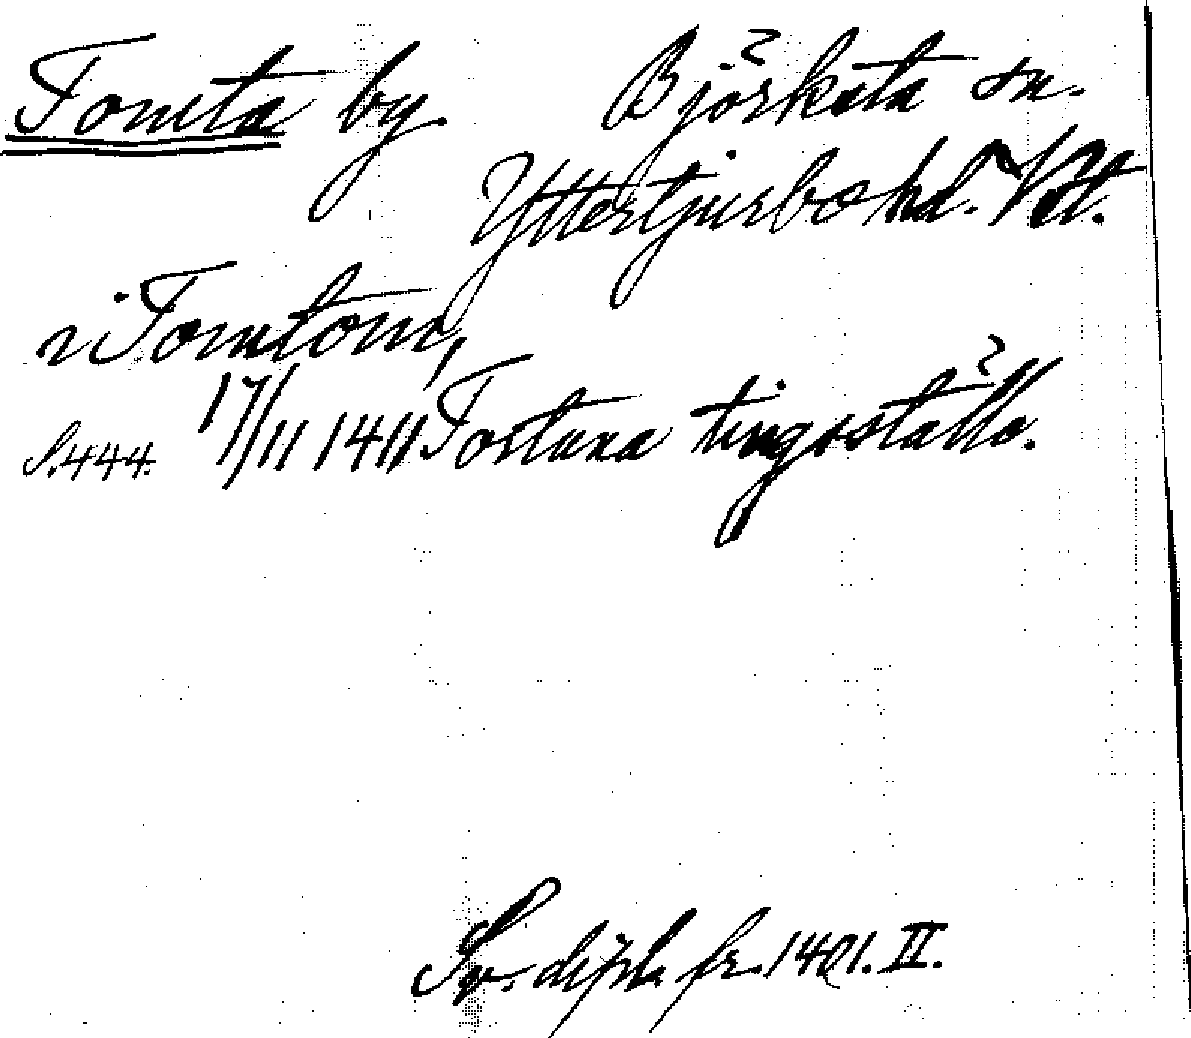 Tomta by. Björksta sn.
Yttertjurbo hd. Vstl.
i Tomtom,
S. 444. 17/11 1411 Tortuna tingsställe.
Sv. dipl. fr. 1401. II.